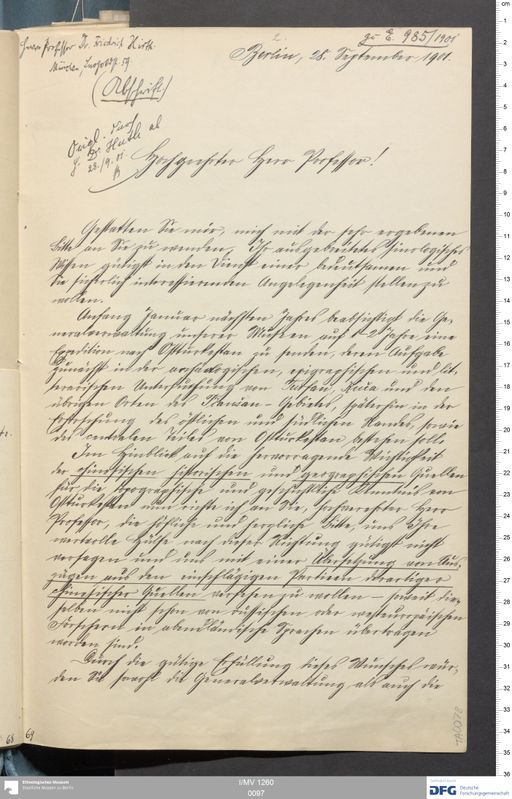 zu E. 985/1901
Herrn Professor Dr. Friedrich Hirth.
München, Leopoldstr. 59
Berlin, 28. September 1901.
(Abschrift.)
Orig. durch
H. Dr. Huth ab
28/9. 01.
Hochgeehrter Herr Professor!
Gestatten Sie mir, mich mit der sehr ergebenen
Bitte an Sie zu wenden, Ihr ausgebreitetes sinologisches
Wissen gütigst in den Dienst einer bedeutsamen und
Sie sicherlich interessierenden Angelegenheit stellen zu
wollen.
Anfang Januar nächsten Jahres beabsichtigt die Ge-
neralverwaltung unserer Museen auf 1-2 Jahre eine
Expedition nach Ostturkestan zu senden, deren Aufgabe
zunächst in der archäologischen, epigraphischen und lit-
terarischen Untersuchung von Turfan, Kučā und den
übrigen Orten des Gebietes, späterhin in der
Erforschung des östlichen und südlichen Randes, sowie
des centralen Teiles von Ostturkestan bestehen solle.
Im Hinblick auf die hervorragende Wichtigkeit
der chinesischen historischen und geographischen Quellen
für die topographische und geschichtliche Kenntnis von
Ostturkestan nun richte ich an Sie, hochgeehrter Herr
Professor, die höfliche und herzliche Bitte, uns Ihre
wertvolle Hülfe nach dieser Richtung gütigst nicht
versagen und uns mit einer Übersetzung von Aus-
zügen aus den einschlägigen Partieen derartiger
chinesischer Quellen versehen zu wollen – soweit die-
selben nicht schon von russischen oder westeuropäischen
Forschern in abendländische Sprachen übertragen
worden sind.
Durch die gütige Erfüllung dieses Wunsches wür-
den Sie sowohl die Generalverwaltung, als auch die
68
69
TA0078
Ethnologisches Museum
Staatliche Museen zu Berlin
I/MV 1260
0097
DFG
Deutsche
Forschungsgemeinschaft